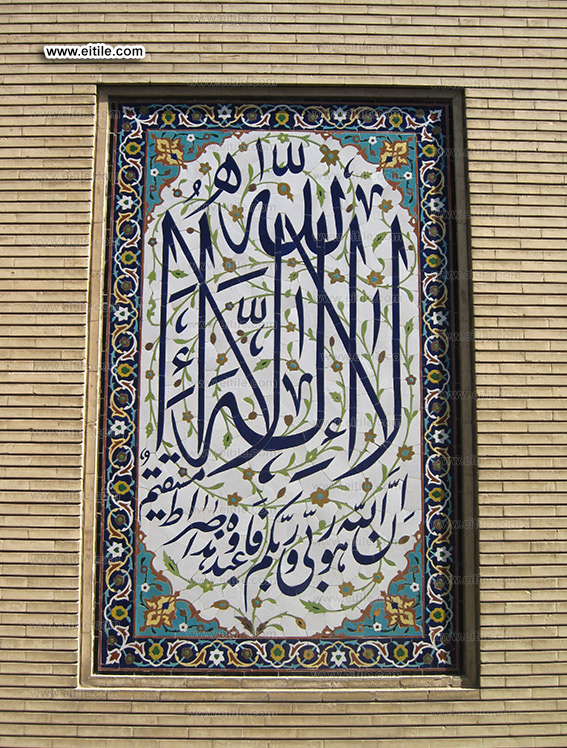 www.eitile.com
لا إله إلا الله
إن الله هو ربي وربكم فاعبدوه هذا صراط مستقيم